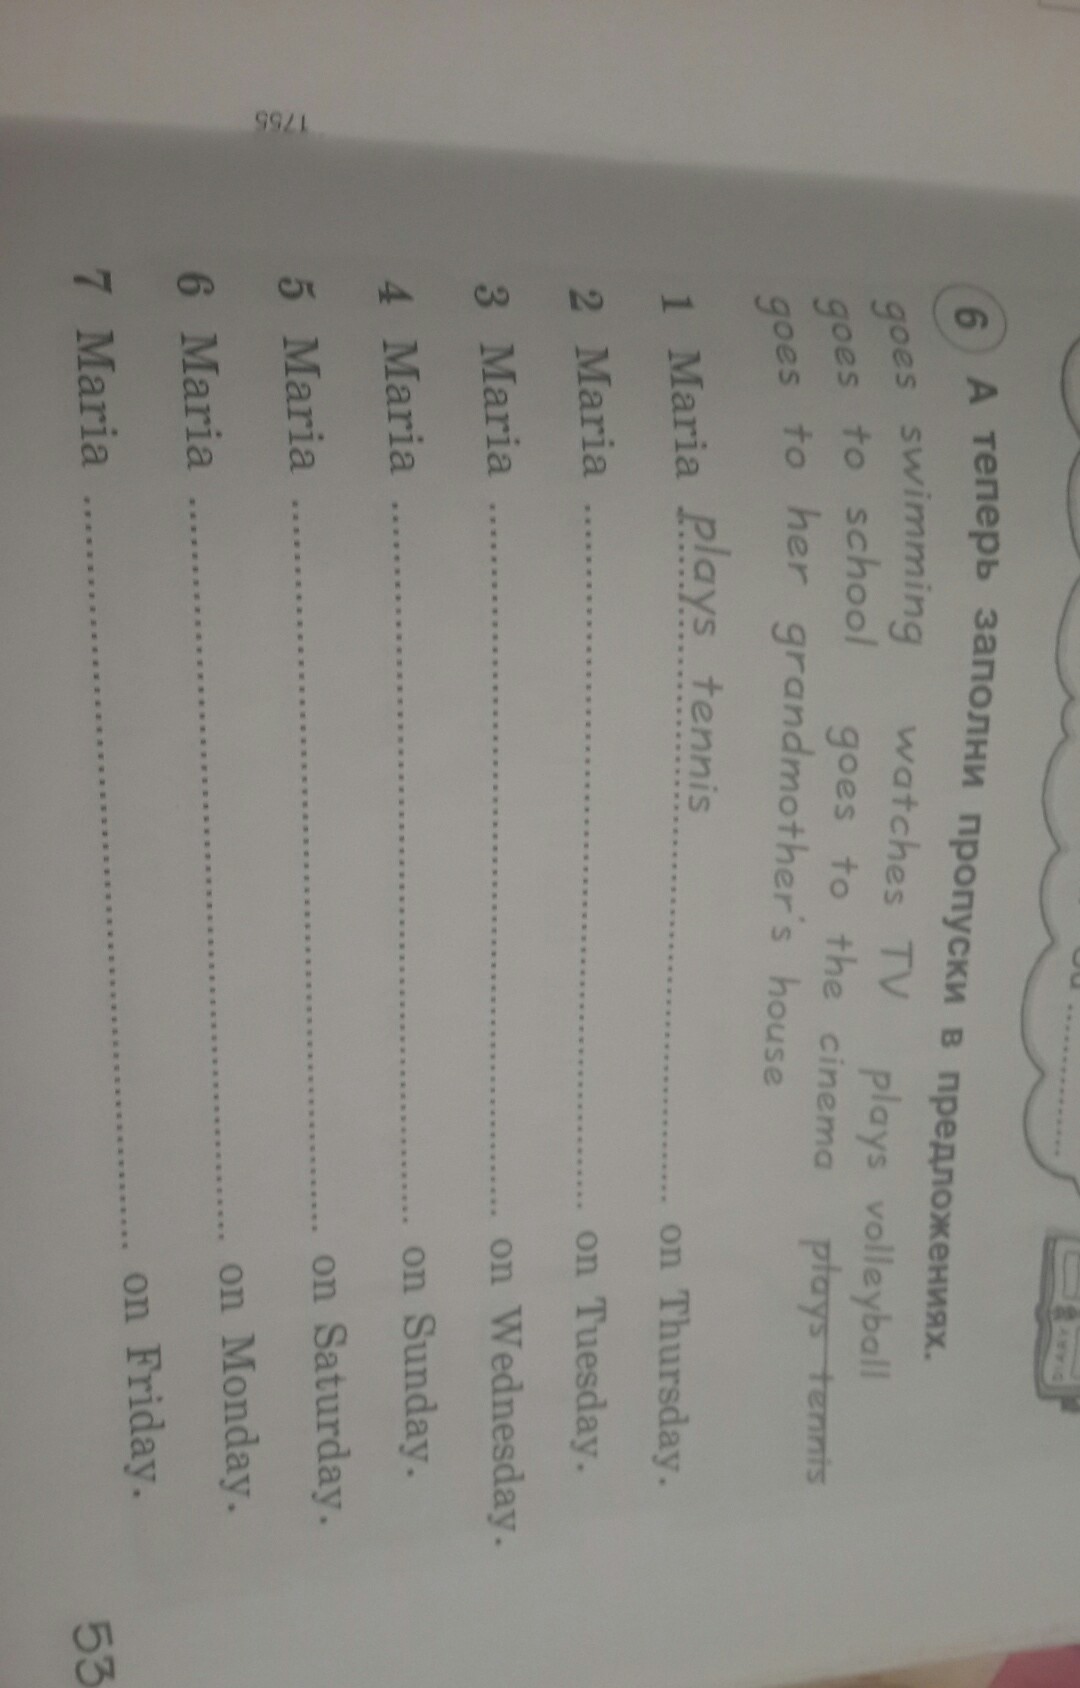 6 А теперь заполни пропуски в предложениях.
goes swimming watches TV plays volleyball
goes to school goes to the cinema plays tennis
goes to her grandmother's house
1 Maria plays tennis on Thursday.
2 Maria ........ on Tuesday.
3 Maria ........ on Wednesday.
4 Maria ........ on Sunday.
5 Maria ........ on Saturday.
6 Maria ........ on Monday.
7 Maria ........ on Friday.
53
1755